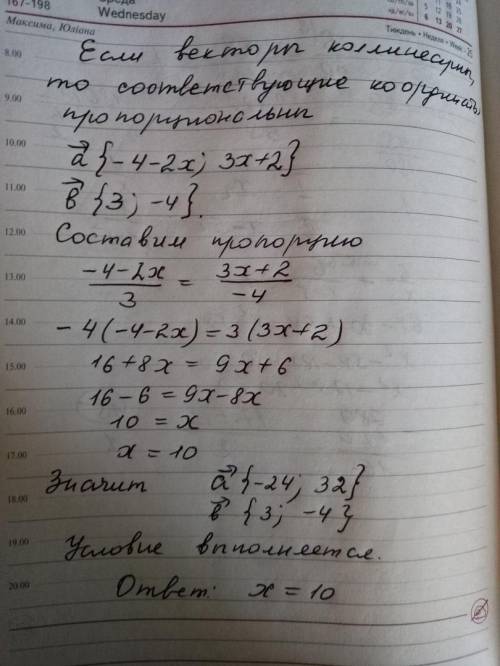 167-198
Wednesday
Максима, Юліана
Тиждень • Неделя • Week - 25
8.00
Если векторы коллинеарны,
то соответствующие координаты
9.00
пропорциональны
10.00
a⃗ {-4-2x; 3x+2}
11.00
b⃗ {3; -4}.
12.00
Составим пропорцию
13.00
(-4-2x)/3 = (3x+2)/(-4)
14.00
-4(-4-2x) = 3(3x+2)
15.00
16+8x = 9x+6
16-6 = 9x-8x
16.00
10 = x
17.00
x = 10
Значит a⃗ {-24; 32}
18.00
b⃗ {3; -4}
19.00
Условие выполняется.
20.00
Ответ: x = 10